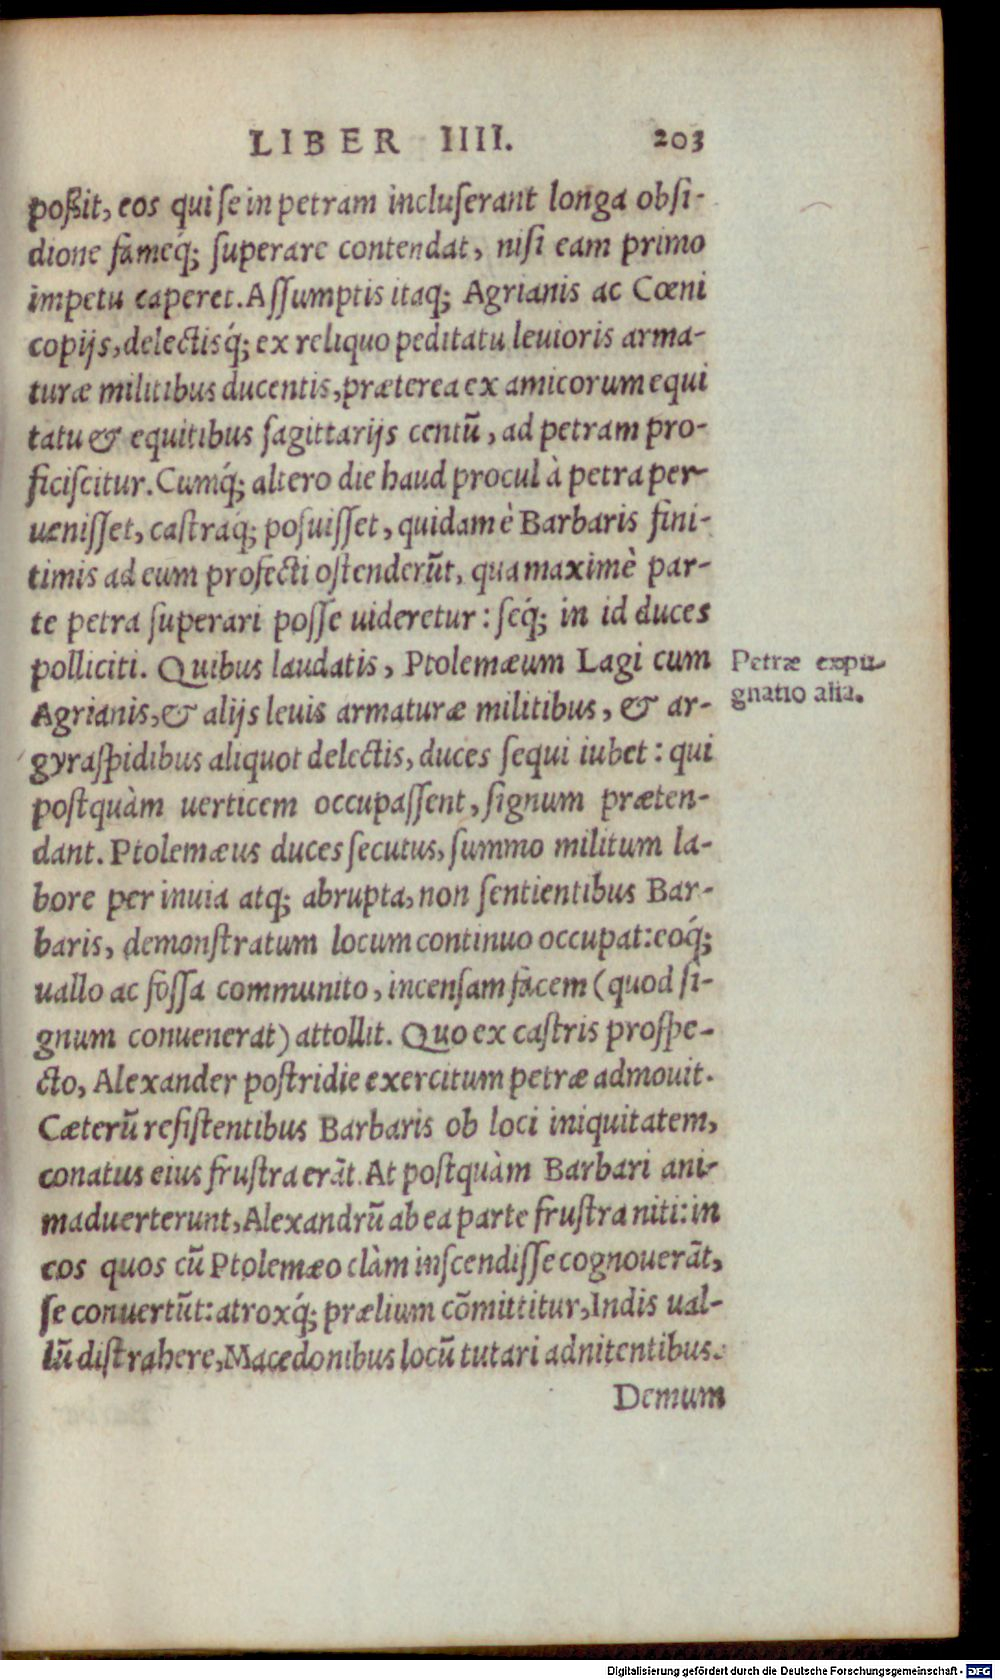 LIBER IIII. 203
poßit, eos qui se in petram incluserant longa obsi-
dione fameq́; superare contendat, nisi eam primo
impetu caperet. Assumptis itaq; Agrianis ac Cœni
copijs, delectisq́; ex reliquo peditatu leuioris arma-
turæ militibus ducentis, præterea ex amicorum equi
tatu & equitibus sagittarijs centū, ad petram pro-
ficiscitur. Cumq́; altero die haud procul à petra per-
uenisset, castraq́; posuisset, quidam è Barbaris fini-
timis ad eum profecti ostenderūt, qua maximè par-
te petra superari posse uideretur: seq́; in id duces
polliciti. Quibus laudatis, Ptolemæum Lagi cum
Petræ expu-
gnatio alia.
Agrianis, & alijs leuis armaturæ militibus, & ar-
gyraspidibus aliquot delectis, duces sequi iubet: qui
postquàm uerticem occupassent, signum præten-
dant. Ptolemæus duces secutus, summo militum la-
bore per inuia atq; abrupta, non sentientibus Bar-
baris, demonstratum locum continuo occupat: eoq́;
uallo ac fossa communito, incensam facem (quod si-
gnum conuenerat) attollit. Quo ex castris prospe-
cto, Alexander postridie exercitum petræ admouit.
Cæterū resistentibus Barbaris ob loci iniquitatem,
conatus eius frustra erāt. At postquàm Barbari ani-
maduerterunt, Alexandrū ab ea parte frustra niti: in
eos quos cū Ptolemæo clàm inscendisse cognouerāt,
se conuertūt: atroxq́; prælium cōmittitur, Indis ual-
lū distrahere, Macedonibus locū tutari adnitentibus.
Demum
Digitalisierung gefördert durch die Deutsche Forschungsgemeinschaft - DFG